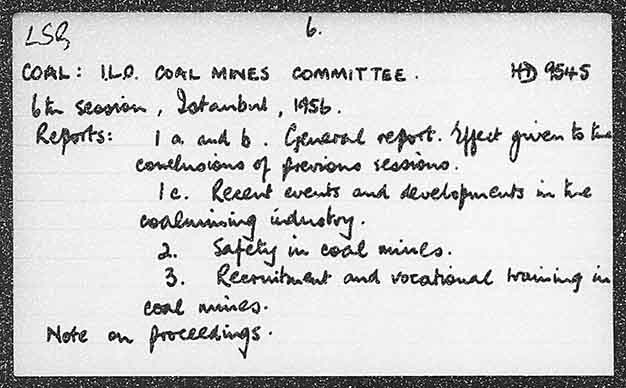 LSB, 6.
COAL: I.L.O. COAL MINES COMMITTEE. HD 9545
6th session, Istanbul, 1956.
Reports: 1 a and b. General report. Effect given to the
conclusions of previous sessions.
1c. Recent events and developments in the
coalmining industry.
2. Safety in coal mines.
3. Recruitment and vocational training in
coal mines.
Note on proceedings.